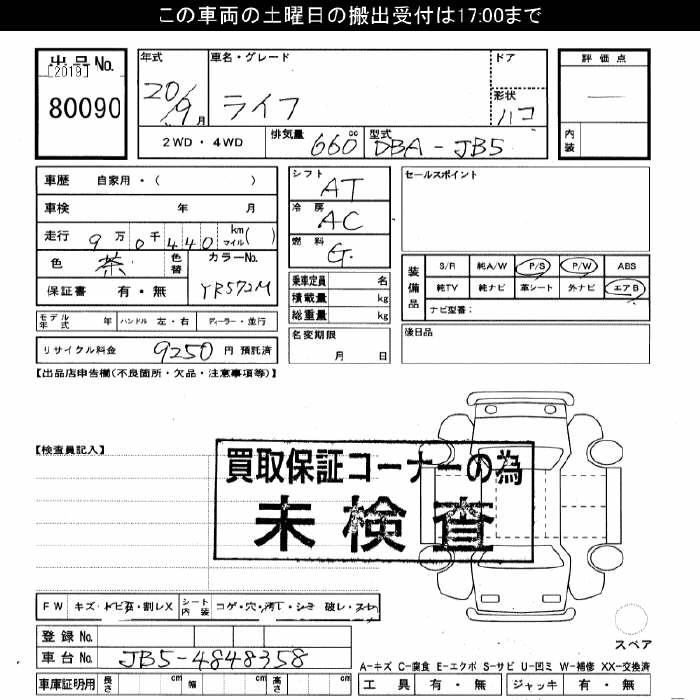 この車両の土曜日の搬出受付は17:00まで
出品No.
[2019]
80090
年式
20/9月
車名・グレード
ライフ
ドア
形状
ハコ
2WD・4WD
排気量
660cc
型式
DBA-JB5
評価点
内装
車歴 自家用・( )
車検 年 月
走行 9万0千440 km マイル( )
色 茶 色替
カラーNo.
YR572M
保証書 有・無
モデル年式 年 ハンドル 左・右 ディーラー・並行
リサイクル料金 9250円 預託済
シフト AT
冷房 AC
燃料 G.
乗車定員 名
積載量 kg
総重量 kg
名変期限
月 日
セールスポイント
装備品
S/R 純A/W P/S P/W ABS
純TV 純ナビ 革シート 外ナビ エアB
ナビ型番:
後日品
【出品店申告欄(不良箇所・欠品・注意事項等)】
【検査員記入】
買取保証コーナーの為
未検査
FW キズ・トビ石・割レX シート内装 コゲ・穴・汚レ・シミ 破レ・スレ
登録No.
車台No. JB5-4848358
車庫証明用 長さ cm 幅 cm 高さ cm
スペア
A-キズ C-腐食 E-エクボ S-サビ U-凹ミ W-補修 XX-交換済
工具 有・無 ジャッキ 有・無